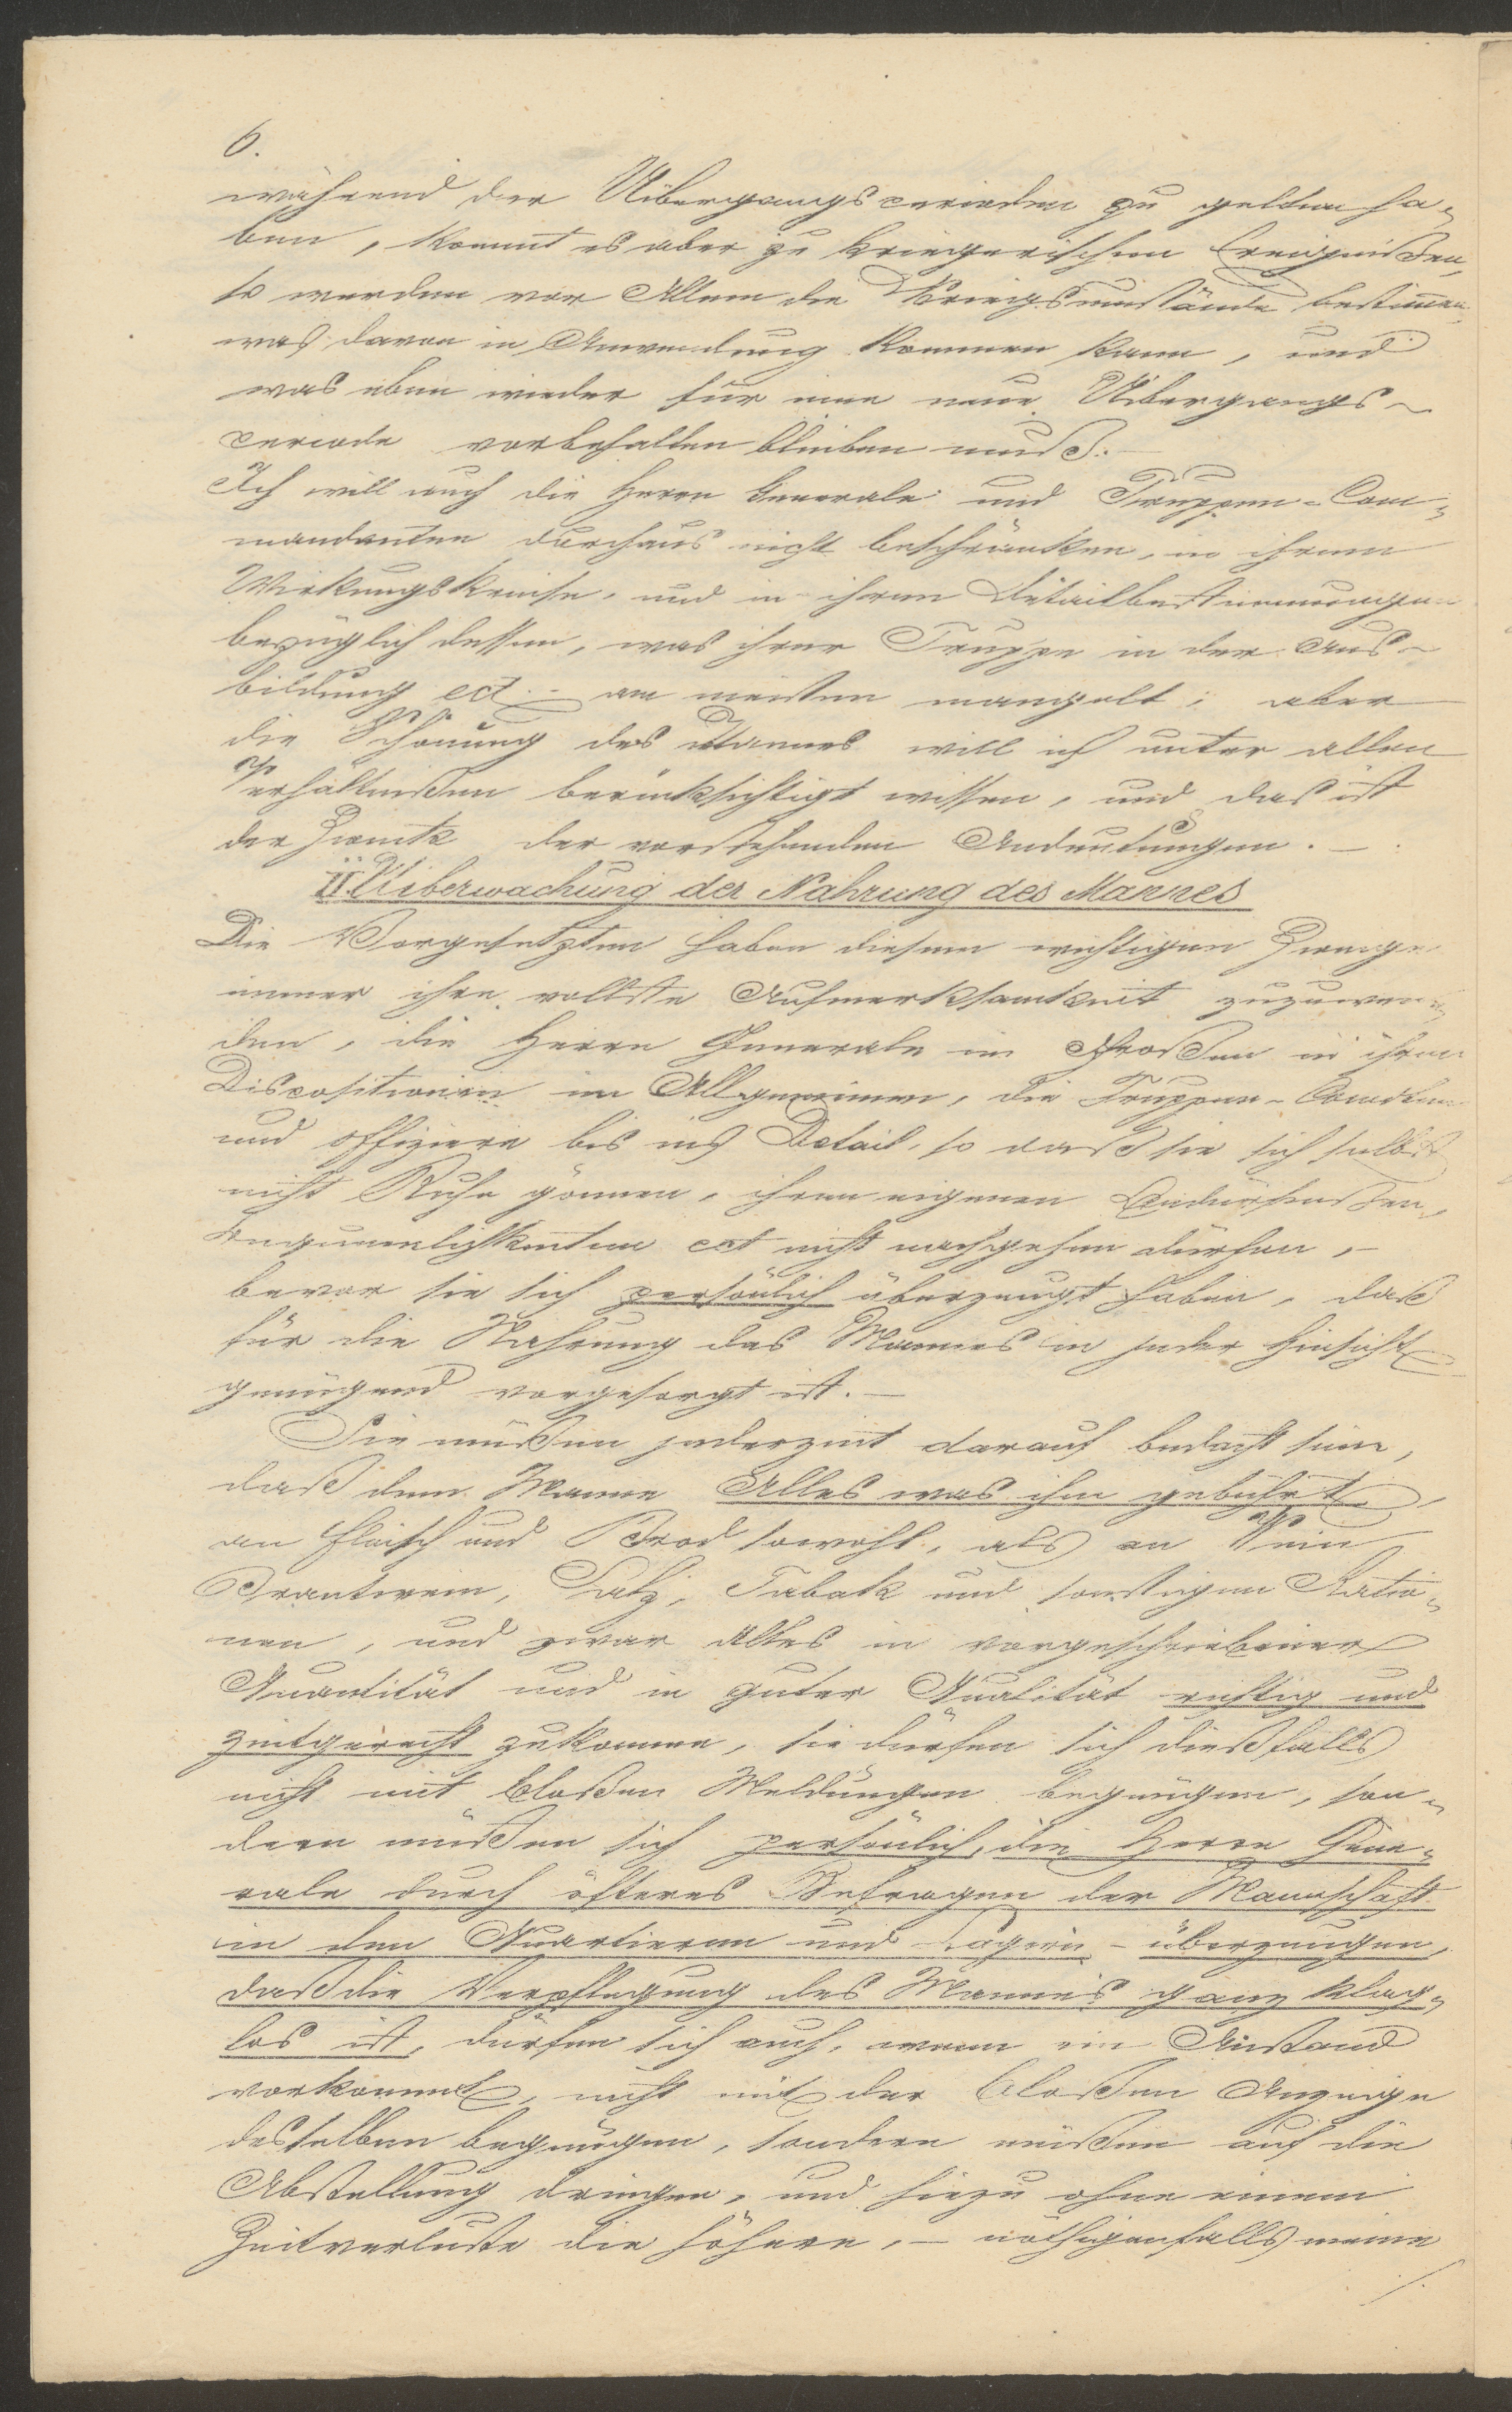 6.
während der Uibergangsperioden zu gelten ha„
ben, kommt es aber zu kriegerischen Ereignißen,
so werden vor Allem die Kriegsumstände bestimmen
was davon in Anwendung kommen kann, und
was eben wieder für eine neue Uibergangs-
periode vorbehalten bleiben muß.-
Ich will auch die Herrn Generale und Truppen-Com„
mandanten durchaus nicht beschränken, in ihrem
Wirkungskreise, und in ihren Detailbestimmungen
bezüglich dessen, was ihrer Truppe in der Aus-
bildung ect.- am meisten mangelt; aber
die Schonung des Mannes will ich unter allen
Verhältnißen berücksichtigt wissen, und das ist
der Zweck der vorstehenden Andeutungen.-
II. Uiberwachung der Nahrung des Mannes
Die Vorgesetzten haben diesem wichtigen Zweige
immer ihre vollste Aufmerksamkeit zuzuwen„
den, die Herrn Generale im Großen in ihren
Dispositionen im Allgemeinen, die Truppen-Comdten
und Offiziere bis ins Detail, so daß sie sich selbst
nicht Ruhe gönnen, ihren eigenen Bedürfnißen,
Bequemlichkeiten ect nicht nachgehen dürfen,-
bevor sie sich persönlich überzeugt haben, daß
für die Nahrung des Mannes in jeder Hinsicht
genügend vorgesorgt ist.-
Sie müßen jederzeit darauf bedacht sein,
daß dem Manne Alles was ihm gebührt,
an Fleisch und Brod sowohl, als an Wein
Brantwein, Salz, Tabak und sonstigen Ratio„
nen, und zwar Alles in vorgeschriebener
Quantität und in guter Qualität richtig und
zeitgerecht zukomme, sie dürfen sich dießfalls
nicht mit bloßen Meldungen begnügen, son„
dern müßen sich persönlich, die Herrn Gene„
rale durch öfteres Befragen der Mannschaft
in den Quartieren und Lagern - überzeugen,
daß die Verpflegung des Mannes ganz klag„
los ist, dürfen sich auch, wenn ein Anstand
vorkommt, nicht mit der bloßen Anzeige
desselben begnügen, sondern müßen auf die
Abstellung dringen, und hiezu ohne einem
Zeitverluste die höhere,- nöthigenfalls meine
/.